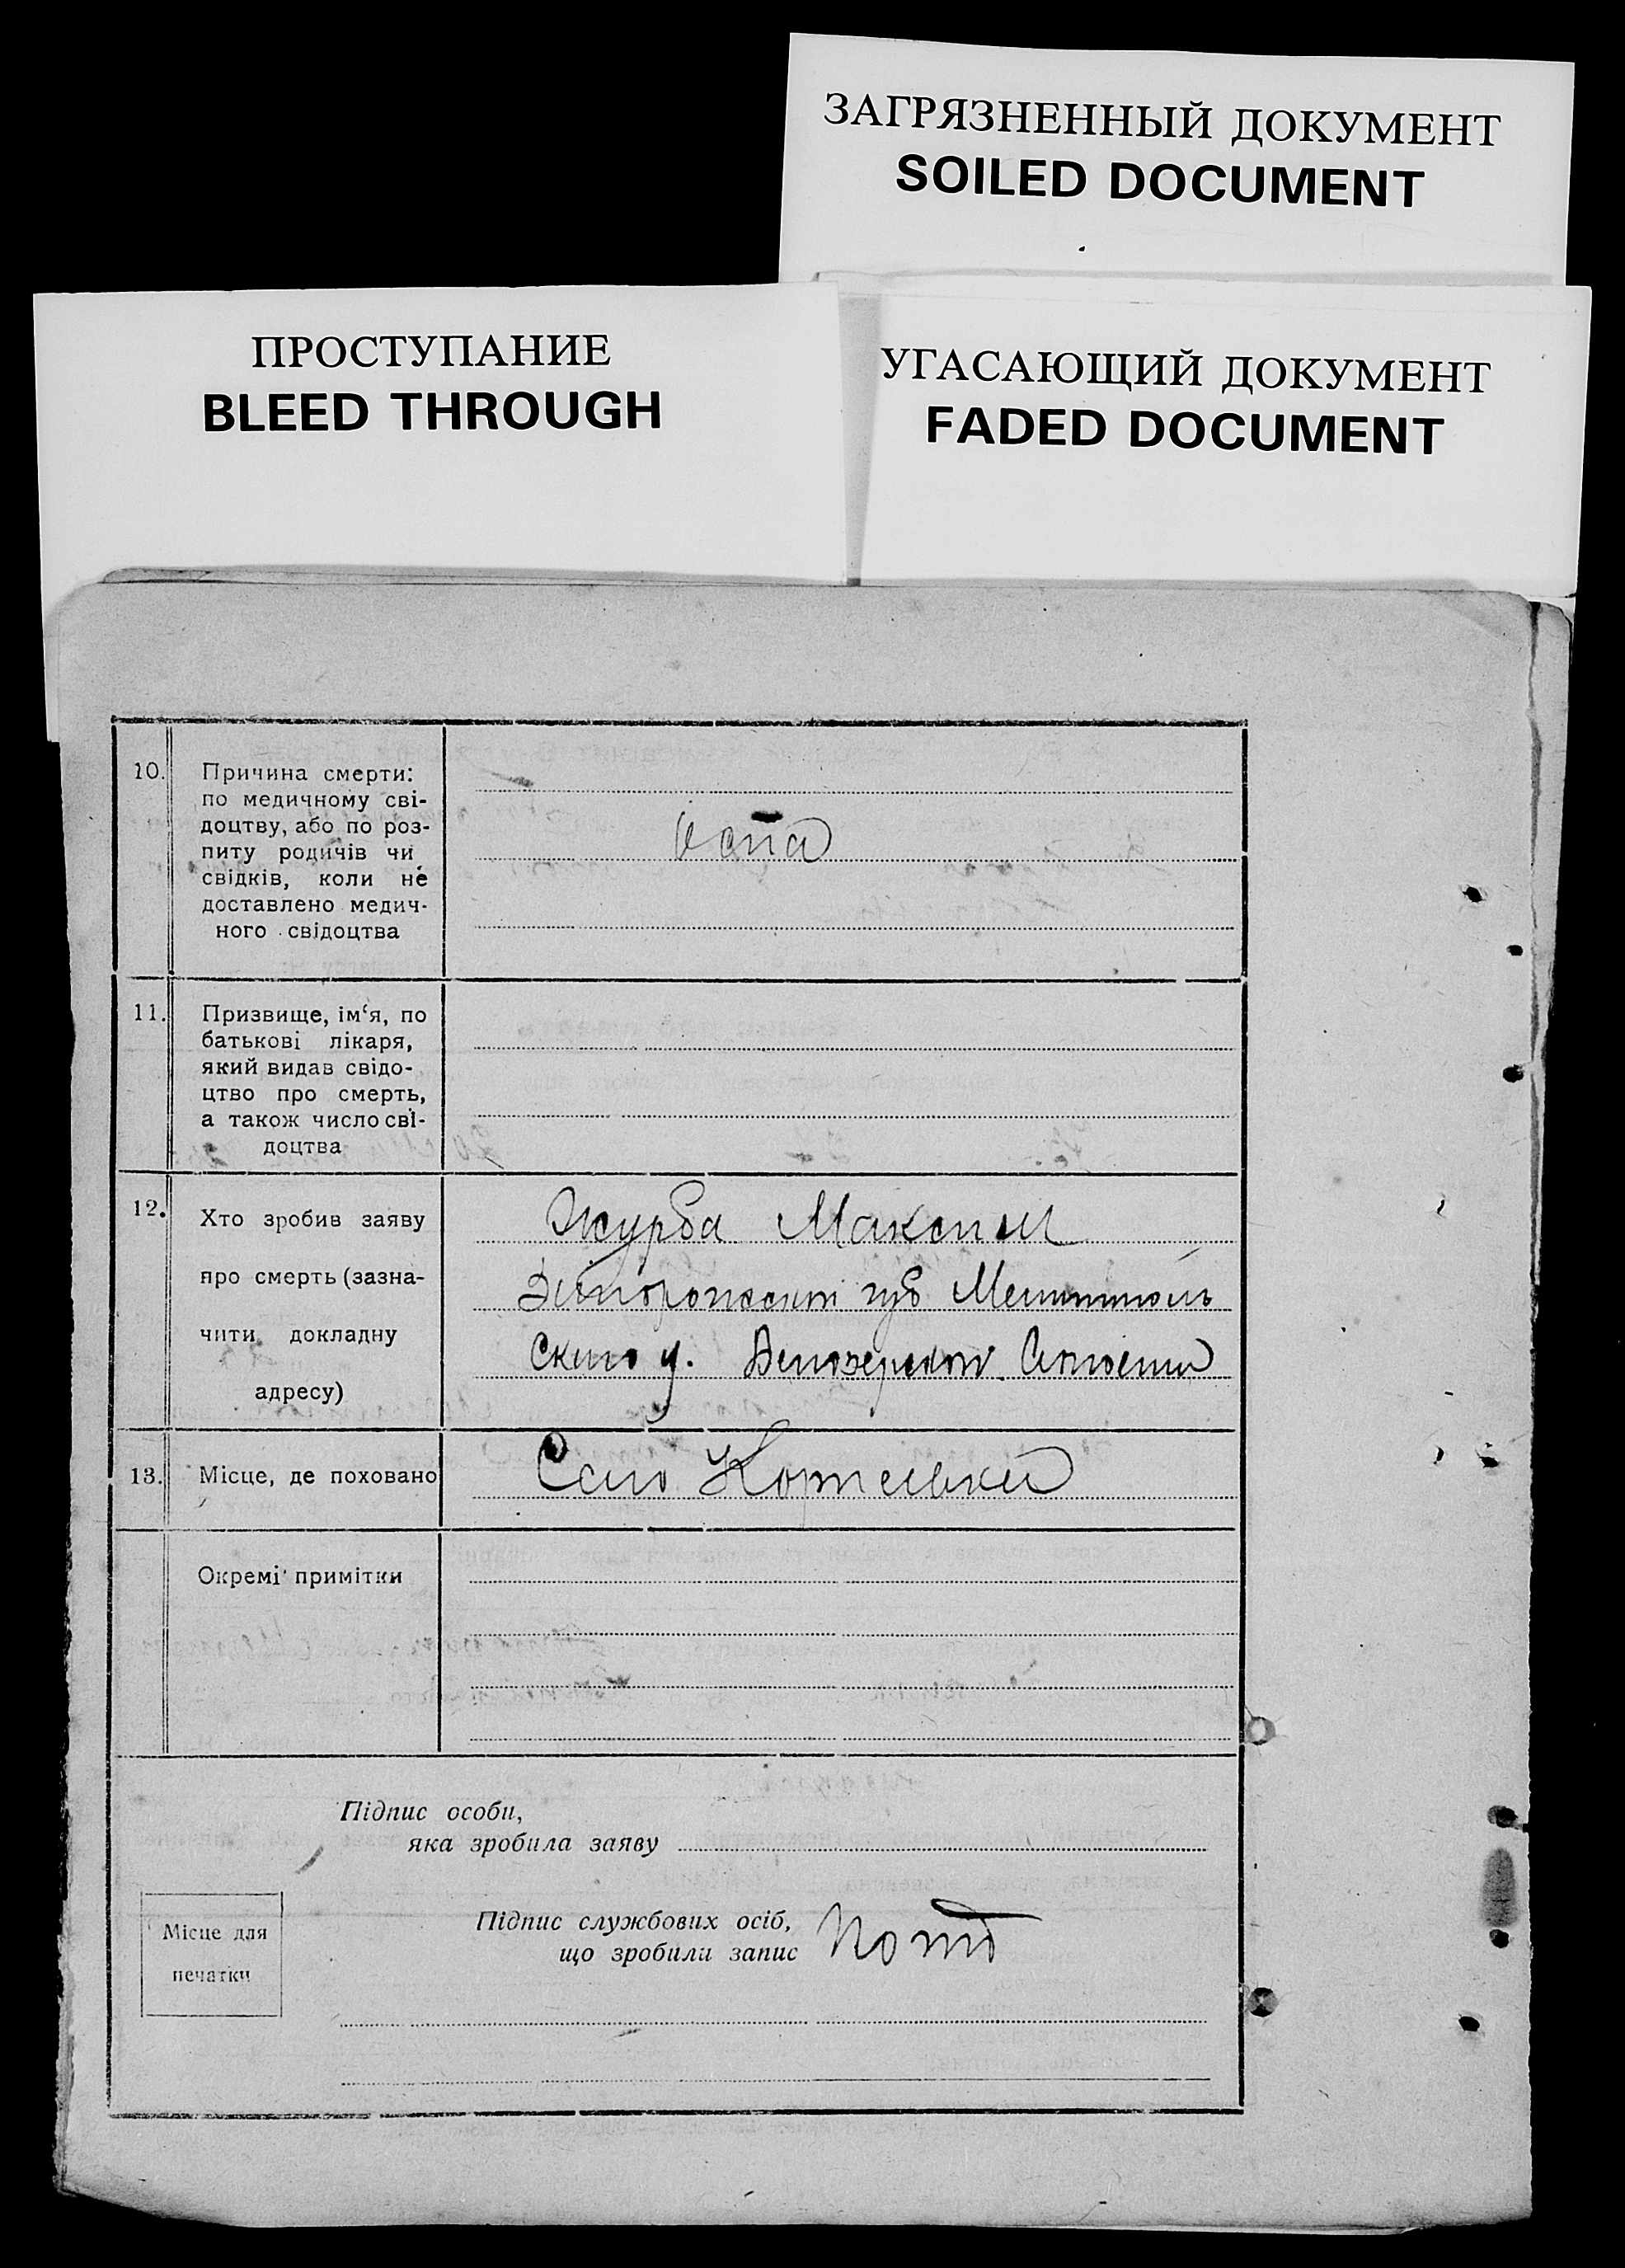 ЗАГРЯЗНЕННЫЙ ДОКУМЕНТ
SOILED DOCUMENT
ПРОСТУПАНИЕ
BLEED THROUGH
УГАСАЮЩИЙ ДОКУМЕНТ
FADED DOCUMENT
10.
Причина смерти:
по медичному сві-
доцтву, або по роз-
питу родичів чи
свідків, коли не
доставлено медич-
ного свідоцтва
оспа
11.
Призвище, ім‘я, по
батькові лікаря,
який видав свідо-
цтво про смерть,
а також число сві-
доцтва
12.
Хто зробив заяву
про смерть (зазна-
чити докладну
адресу)
Журба Максим
губ
ского у.
13.
Місце, де поховано
Село
Окремі примітки
Підпис особи,
яка зробила заяву
Місце для
печатки
Підпис службових осіб,
що зробили запис